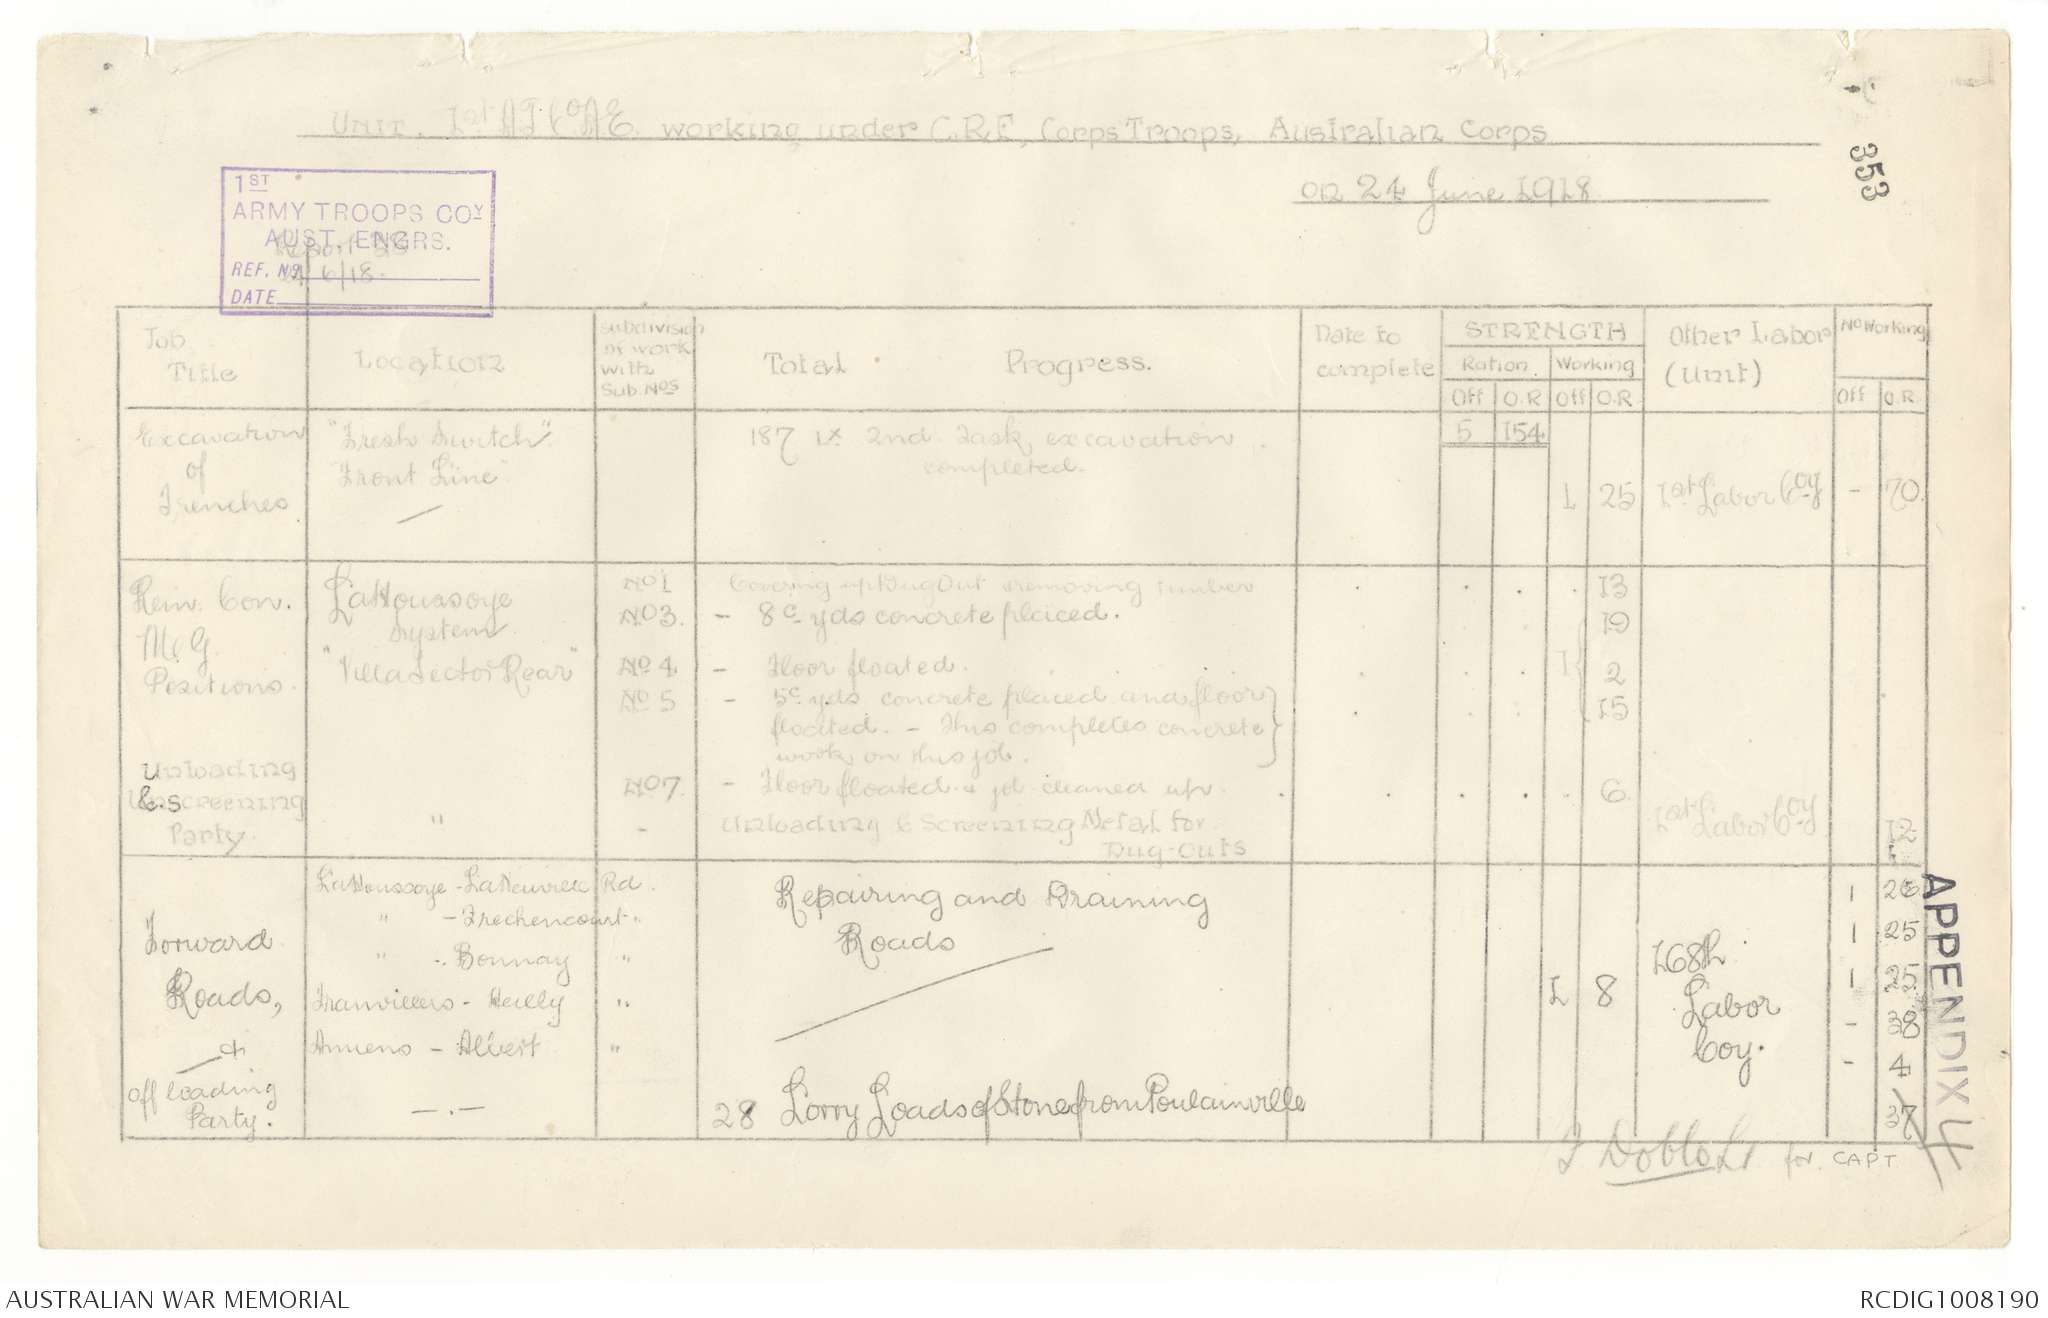 Unit. 1st A.T. Coy A.E. working under C.R.E, Corps Troops, Australian Corps
on 24 June 1918.
353
1ST
ARMY TROOPS COY
AUST. ENGRS.
REF. No.
DATE
Report 25
24/6/18.
Job Title
Location
Subdivision of work with Sub. Nos
Total Progress.
Date to complete
STRENGTH
Ration. Working
Off O.R Off O.R.
Other Labor (Unit)
No Working
Off O.R.
Excavation of Trenches
"Fresh Switch"
"Front Line"
187 1x 2nd. Task, excavation completed.
5 154
1 25
1st Labor Coy - 70.
Rein. Con. M.G. Positions.
LaHoussoye System
"Villa Sector Rear"
No 1 Covering up Dug Out removing timber 13
No 3. - 8 c yds concrete placed. 19
No 4 - Floor floated. 1 2
No 5 - 5 c yds concrete placed and floor floated. - This completes concrete work on this job. 15
No 7. - Floor floated & jd cleaned up. 6
Unloading & Screening Party.
" - Unloading & Screening Metal for Dug-Outs
1st Labor Coy 12
Forward Roads, &
LaHoussoye - LaNeuville Rd. 1 26
" - Frechencourt " 1 25
" - Bonnay " 1 25
Franvillers - Heilly " - 38
Amiens - Albert " - 4
Repairing and Draining Roads
1 8
168th. Labor Coy.
Off loading Party.
— . —
28 Lorry Loads of Stone from Poulainville
37
F Doble Lt for. CAPT
APPENDIX 4
AUSTRALIAN WAR MEMORIAL
RCDIG1008190